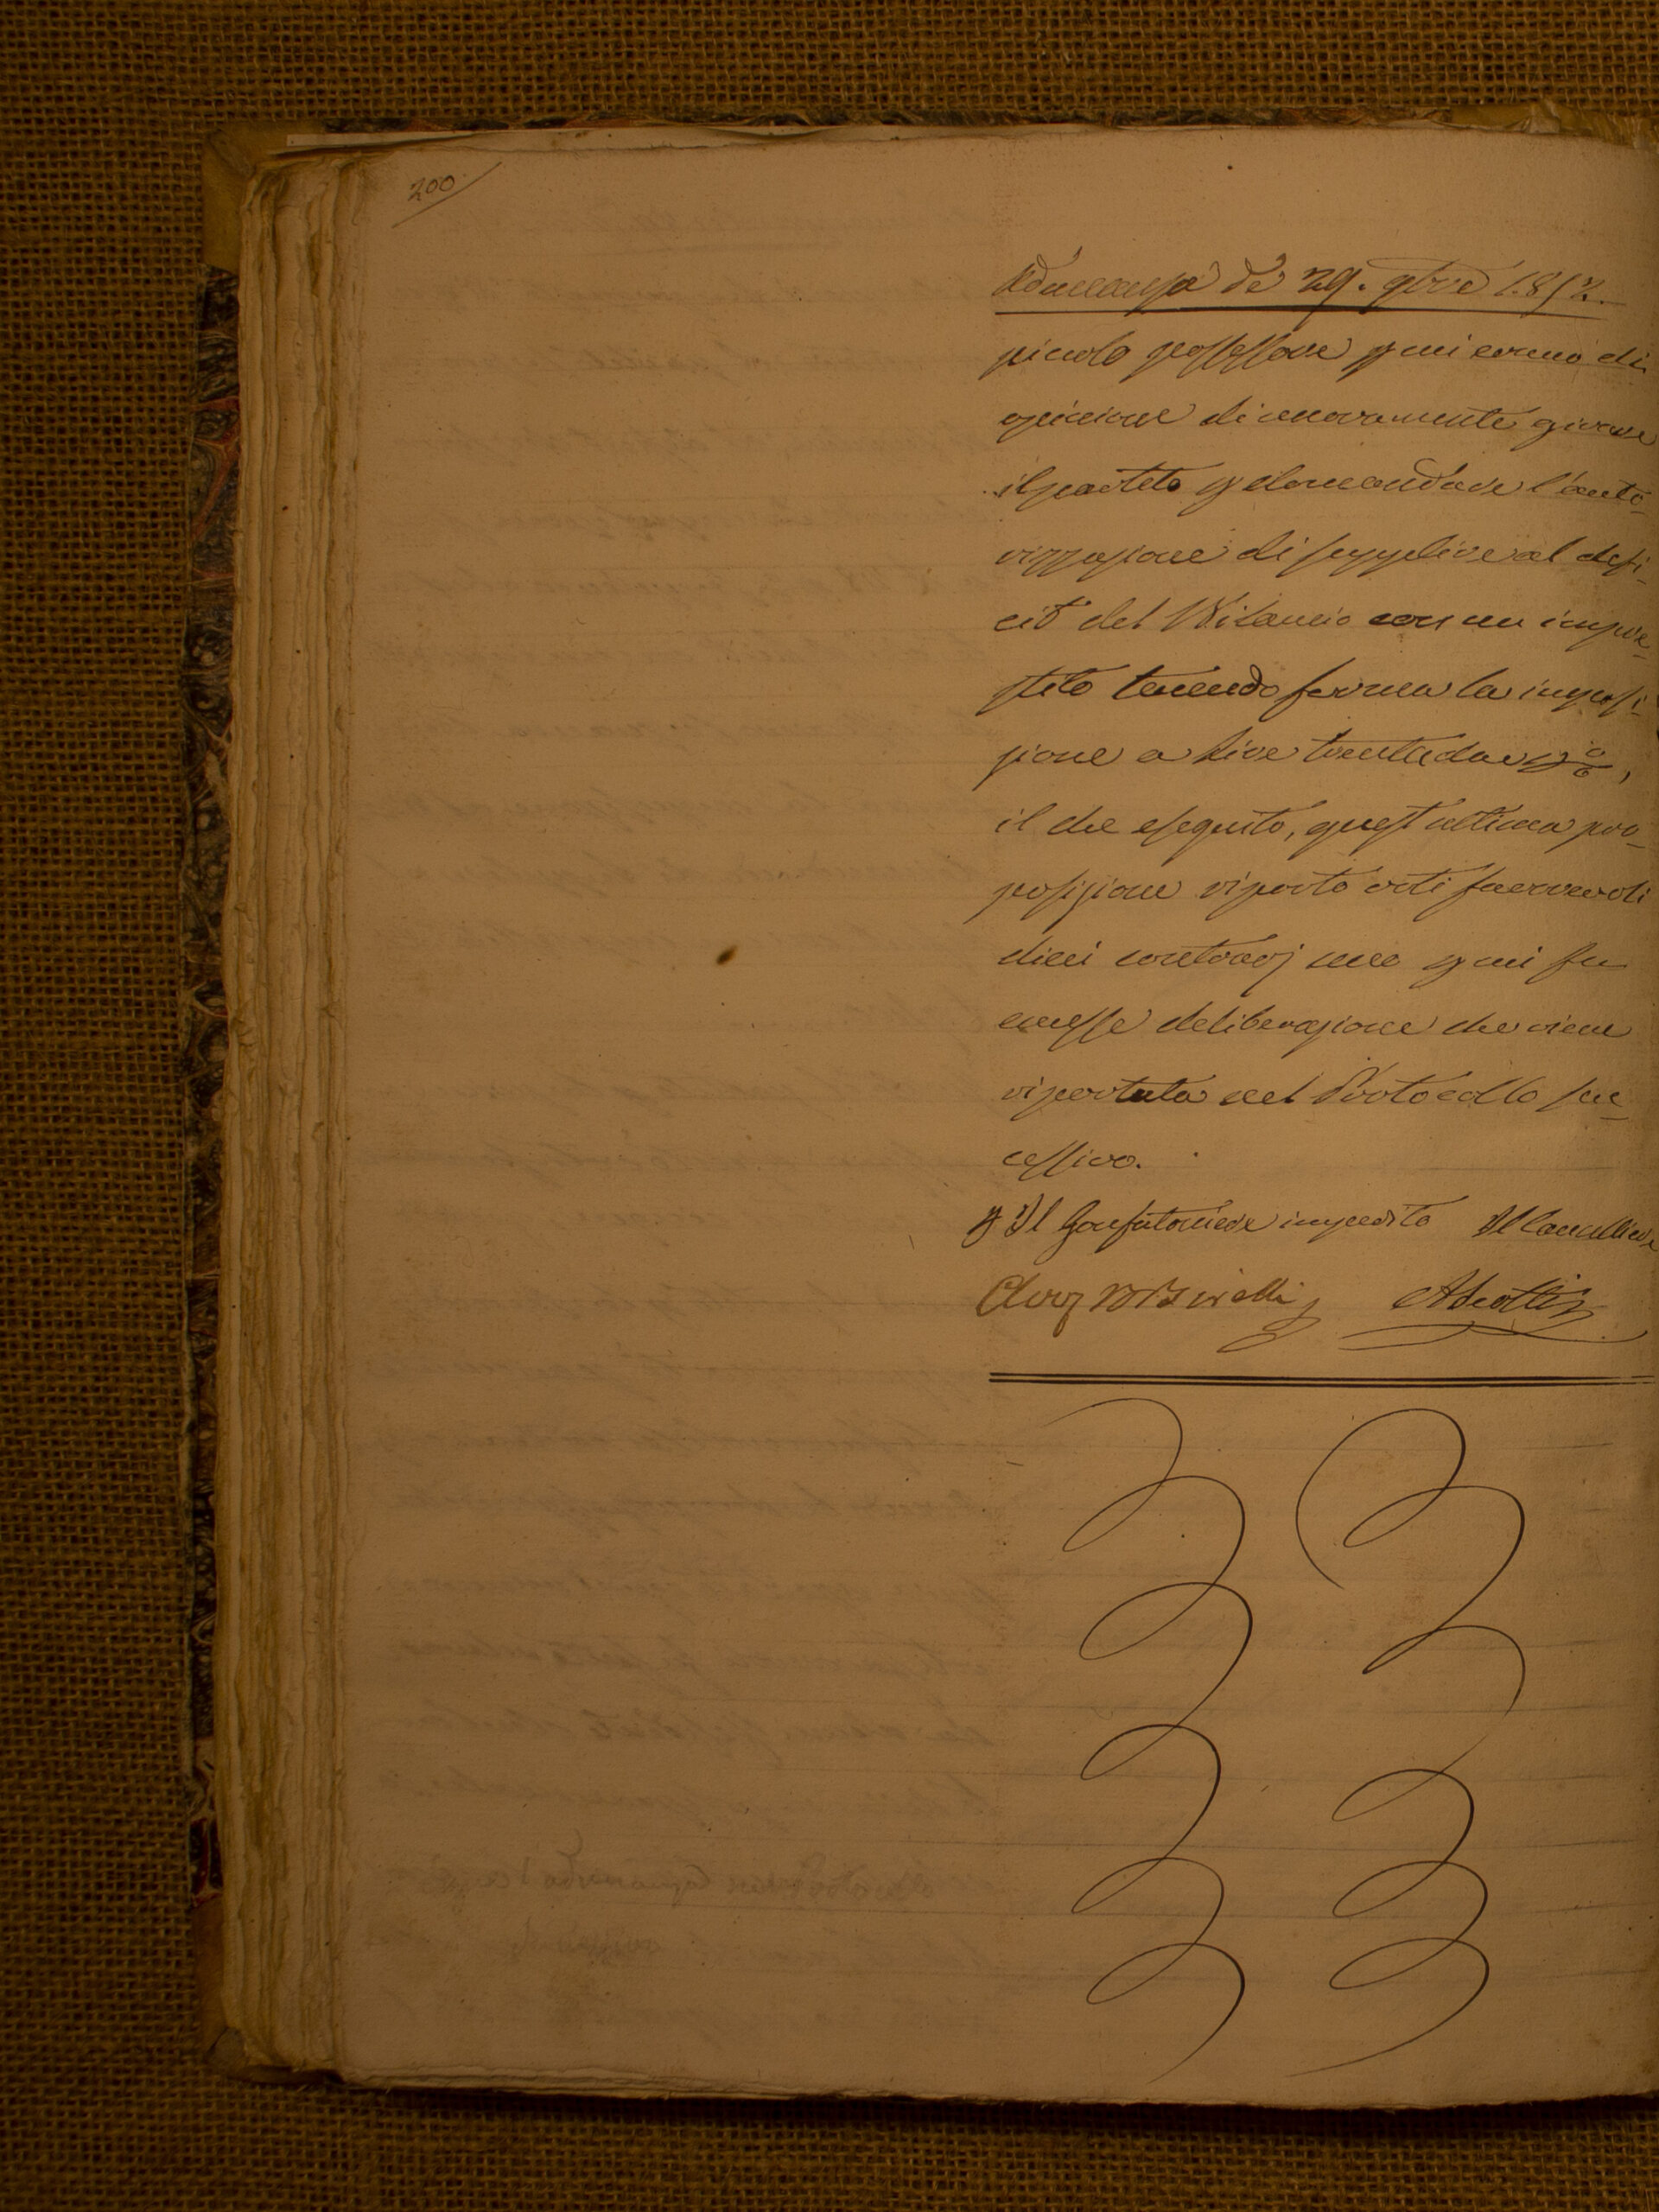 200
Adunanza de 29. 9bre 1852.
piccolo possessore p cui erano di
opinione di nuovamente girare
il partito p domandare l'auto-
rizzazione di supplire al defi-
cit del Bilancio con un impre-
stito tenendo ferma la imposi-
zione a Lire trentadue p %,
il che eseguito, quest'ultima pro-
posizione riportò voti favorevoli
dieci contrarj uno p cui fu
emesse deliberazione che viene
riportata nel Protocollo suc-
cessivo.
p Il Gonfaloniere impedito Il Cancelliere